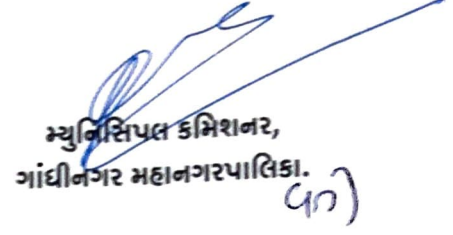 મ્યુનિસિપલ કમિશનર,
ગાંધીનગર મહાનગરપાલિકા.